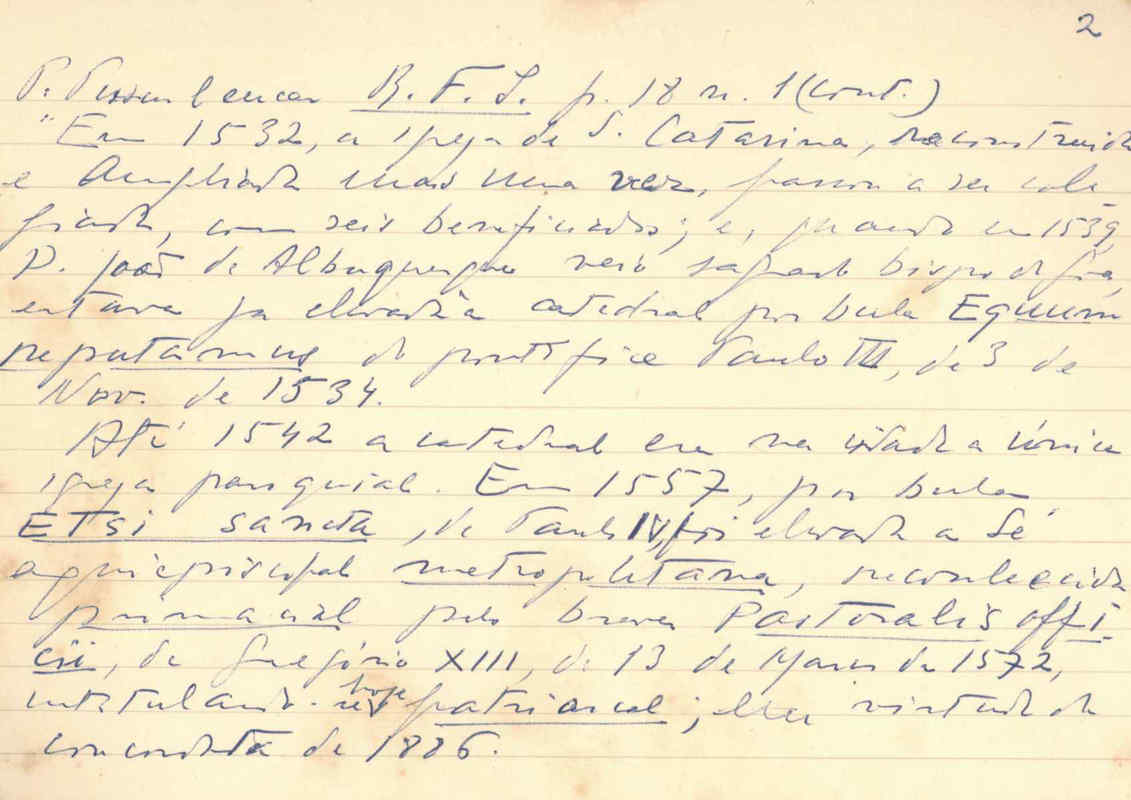 2
P. Pissurlencar R. F. S. p. 18 n. 1 (cont.)
"Em 1532, a igreja de S. Catarina, reconstruida
e ampliada mais uma vez, passou a ser cole
giada, com seis beneficiados; e, quando em 1539,
D. João de Albuquerque veio sagrado bispo de Goa,
estava ja elevada a catedral por bula Equum
reputamus do pontifice Paulo III, de 3 de
Nov. de 1534.
Até 1542 a catedral era na cidade a única
igreja paroquial. Em 1557, por bula
Etsi sancta, de Paulo IV, foi elevada a Sé
arquiepiscopal metropolitana, reconhecida
primacial pelo breve Pastoralis offi-
cii, de Gregório XIII, de 13 de de 1572,
intitulando-se hoje patriarcal, em virtude da
concordata de 1886.